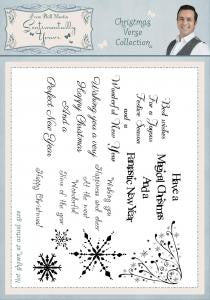 from Phill Martin
Sentimentally
Yours
Christmas
Verse
Collection
Best wishes
For a Joyous
Festive Season
Have a
Magical Christmas
And a
Fantastic New Year
Wishing you a very
Happy Christmas
And a
Perfect New Year
and a
Wonderful New Year
Wishing you
Happiness and cheer
At the most
Time of the year
Wonderful
Happy Christmas